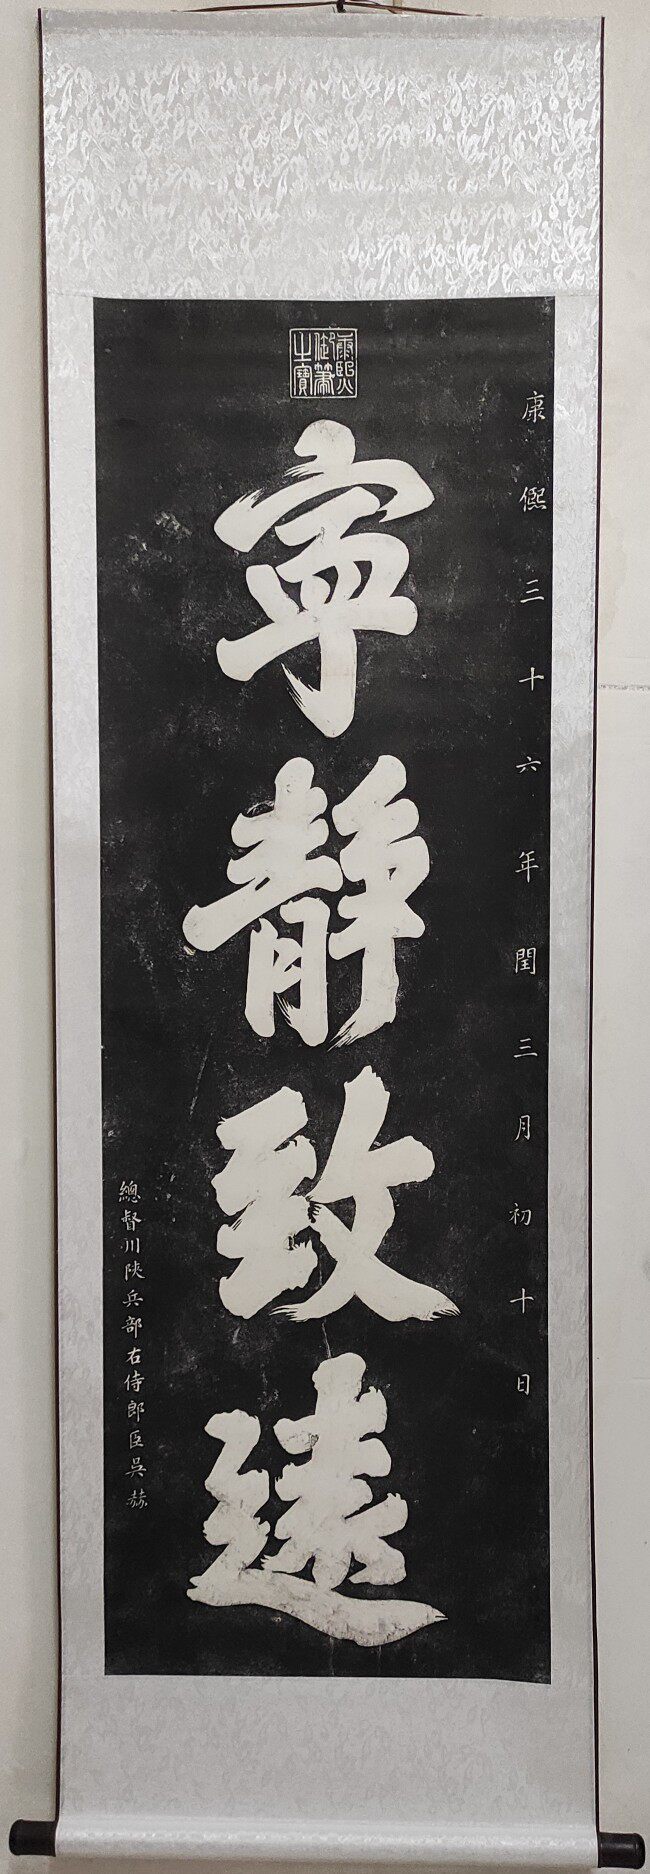 康熙三十六年閏三月初十日
康熙御筆之寶
寧靜致遠
總督川陝兵部右侍郎臣吳赫